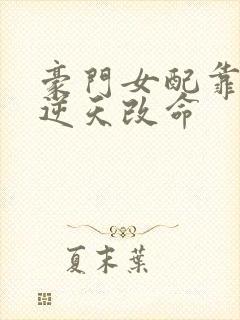 豪門女配靠
逆天改命
夏末葉